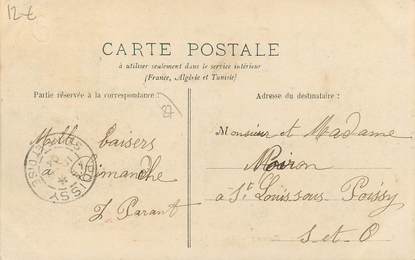 12€
CARTE POSTALE
à utiliser seulement dans le service intérieur
(France, Algérie et Tunisie)
Partie réservée à la correspondance:
Adresse du destinataire:
87
Mille baisers
à Dimanche
J. Parant
POISSY
SEINE-ET-OISE
Monsieur et Madame
Moiron
à St Louis sous Poissy
S-et-O